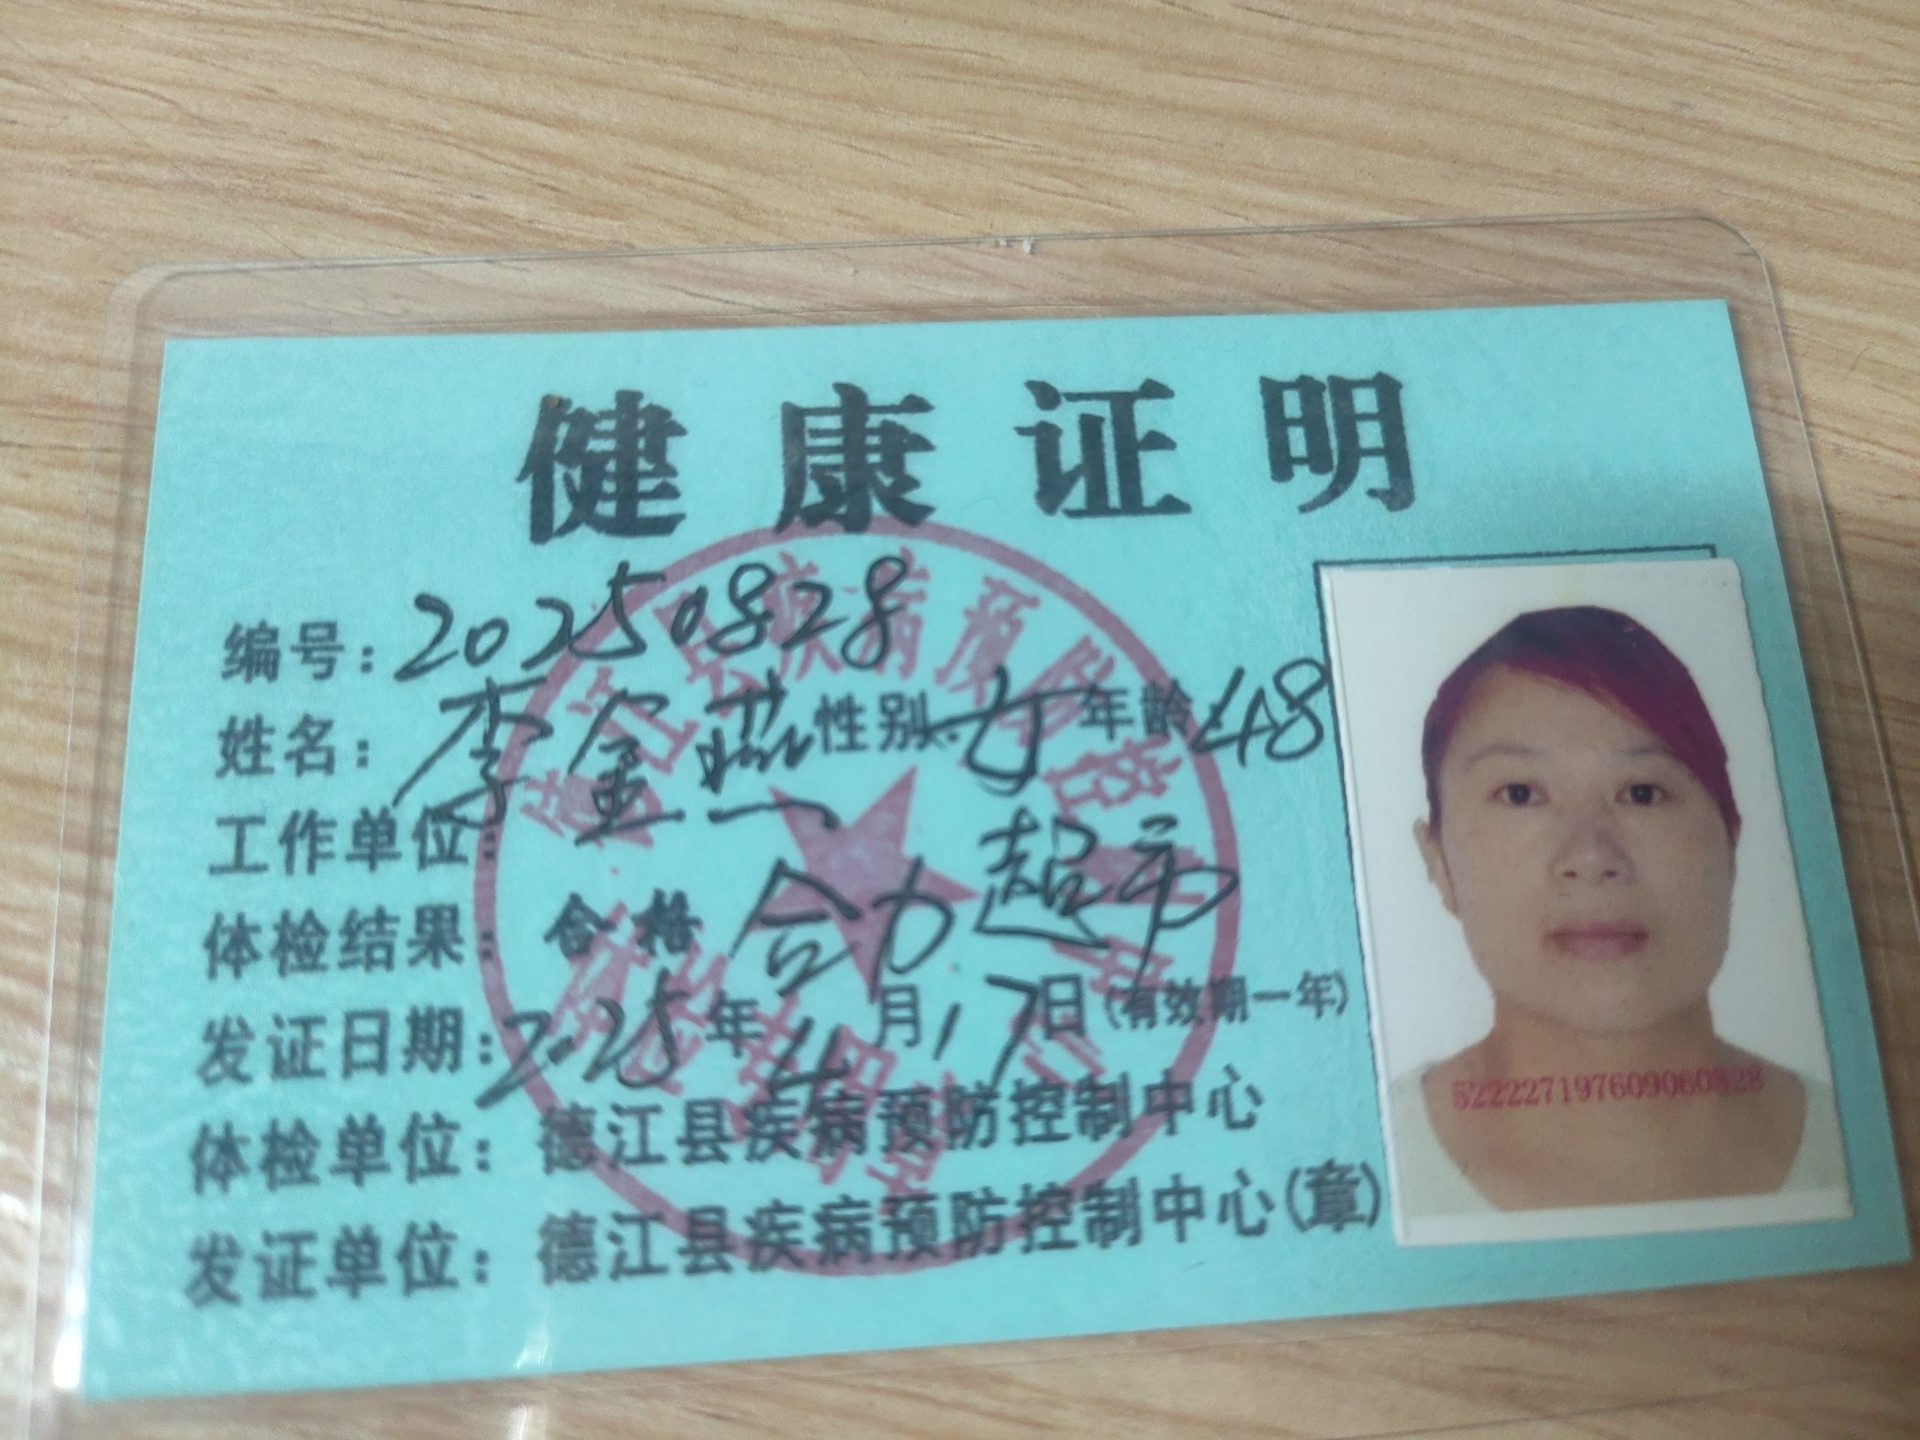 健康证明
编号：20250828
姓名：李金燕 性别：女 年龄：48
工作单位：合力超市
体检结果：合格
发证日期：2025年4月17日（有效期一年）
体检单位：德江县疾病预防控制中心
发证单位：德江县疾病预防控制中心（章）
522227197609060828
德江县疾病预防控制中心